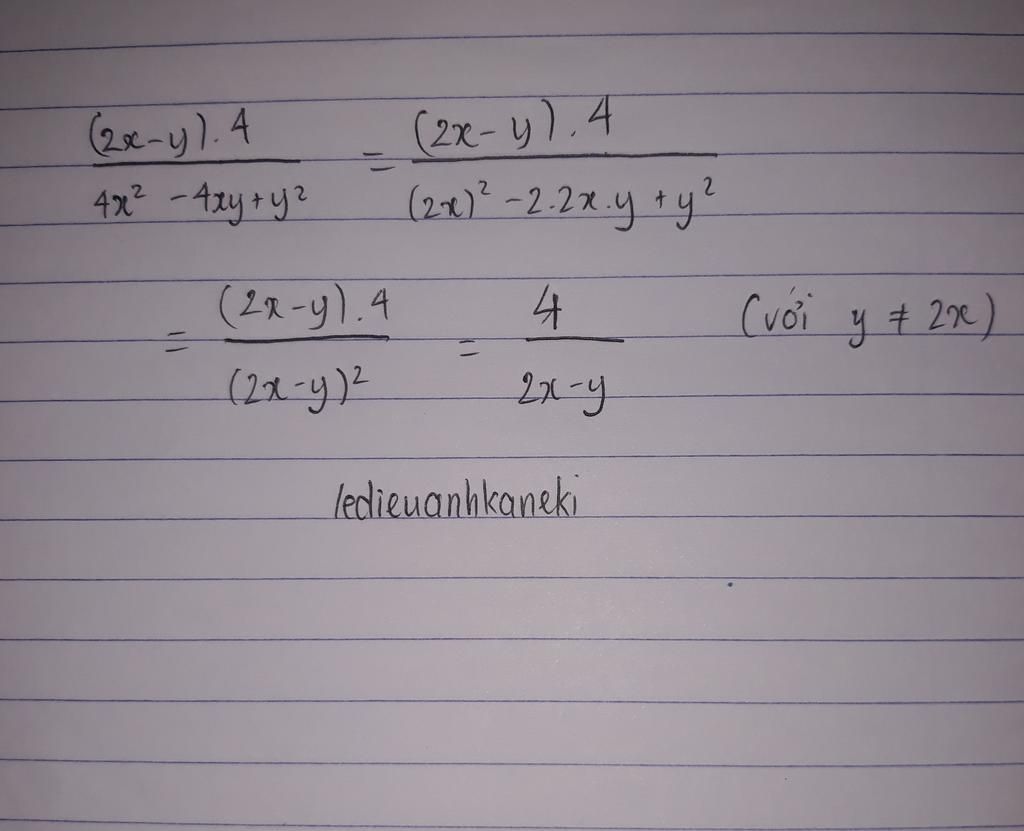 (2x-y).4 / 4x² - 4xy + y² = (2x-y).4 / (2x)² - 2.2x.y + y²
= (2x-y).4 / (2x-y)² = 4 / 2x-y (với y ≠ 2x)
ledieuanhkaneki